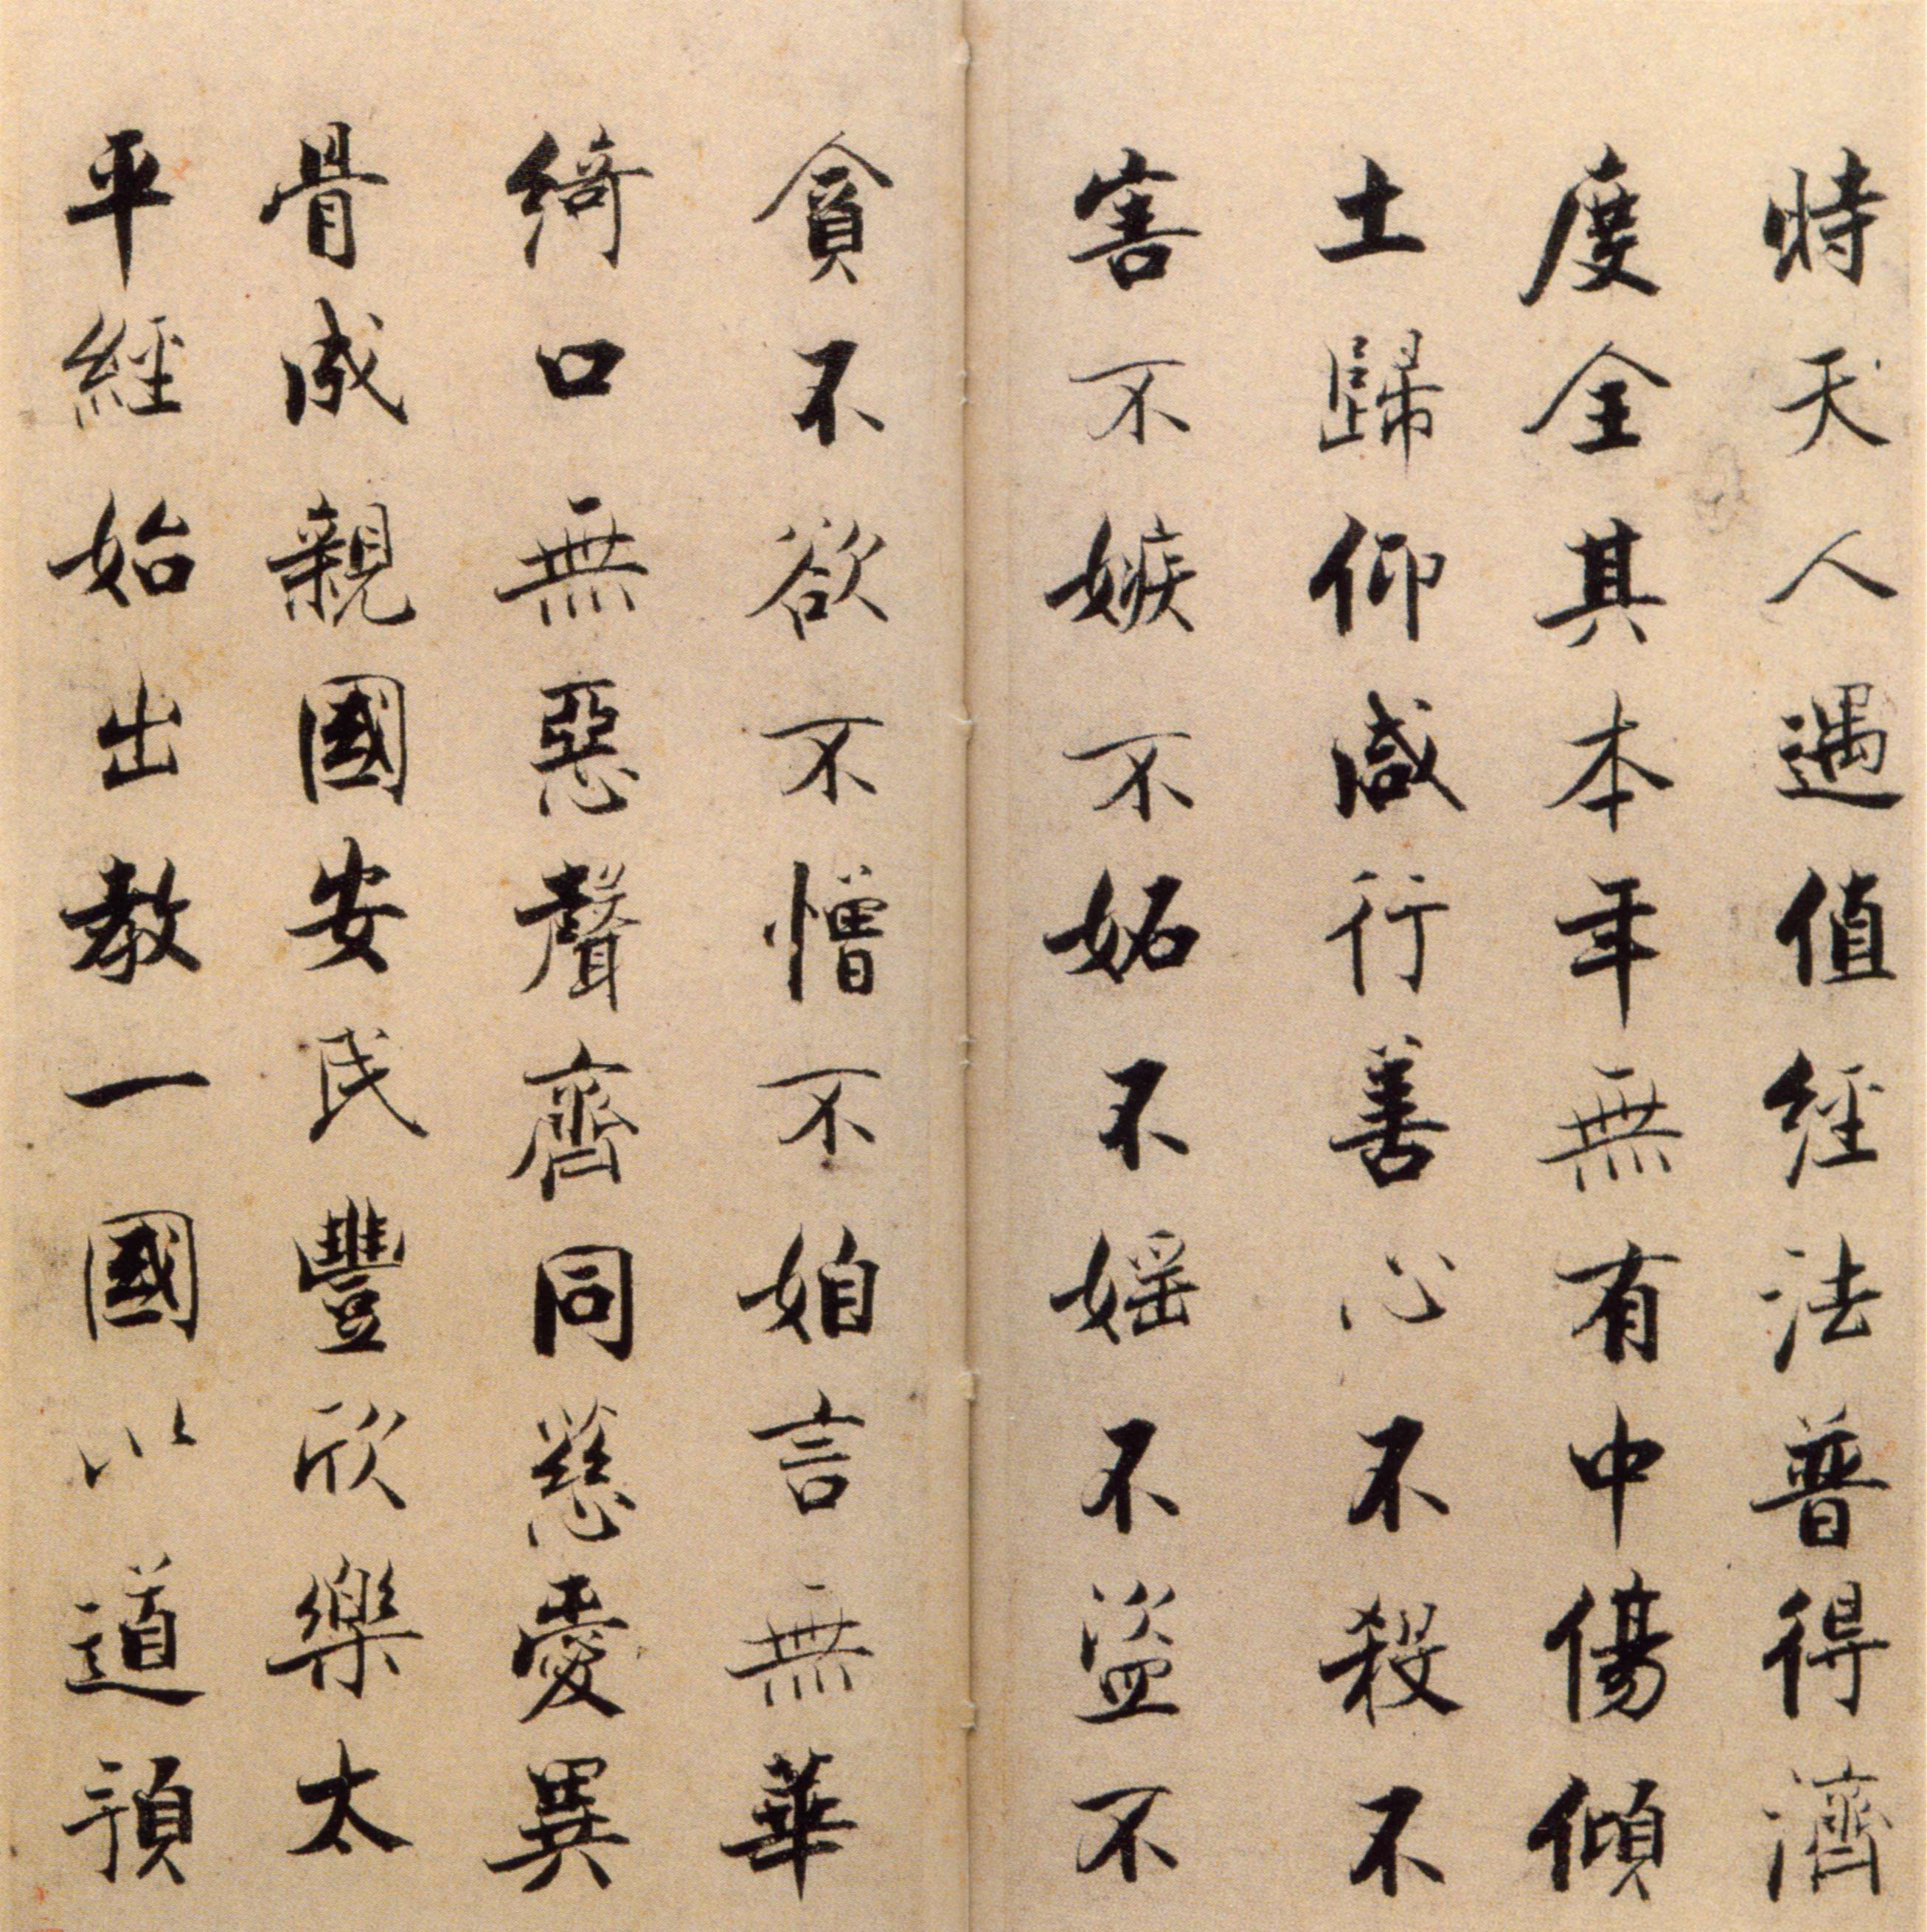 時天人遇值經法普得濟
度全其本年無有中傷傾
土歸仰咸行善心不殺不
害不嫉不妬不婬不盜不
貪不欲不憎不㛼言無華
綺口無惡聲齊同慈愛異
骨成親國安民豐欣樂太
平經始出教一國以道預